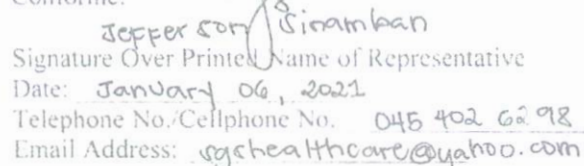 Conforme:
Jefferson Sinamban
Signature Over Printed Name of Representative
Date: January 06, 2021
Telephone No./Cellphone No. 045 402 62 98
Email Address: sgshealthcare@yahoo.com